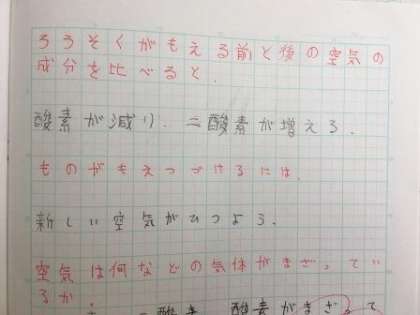 ろうそくがもえる前と後の空気の
成分を比べると、
酸素が減り、二酸素が増えろ.
ものがもえつづけるには、
新しい空気がひつよう.
空気は何などの気体がまざって
るか
酸素がまざって